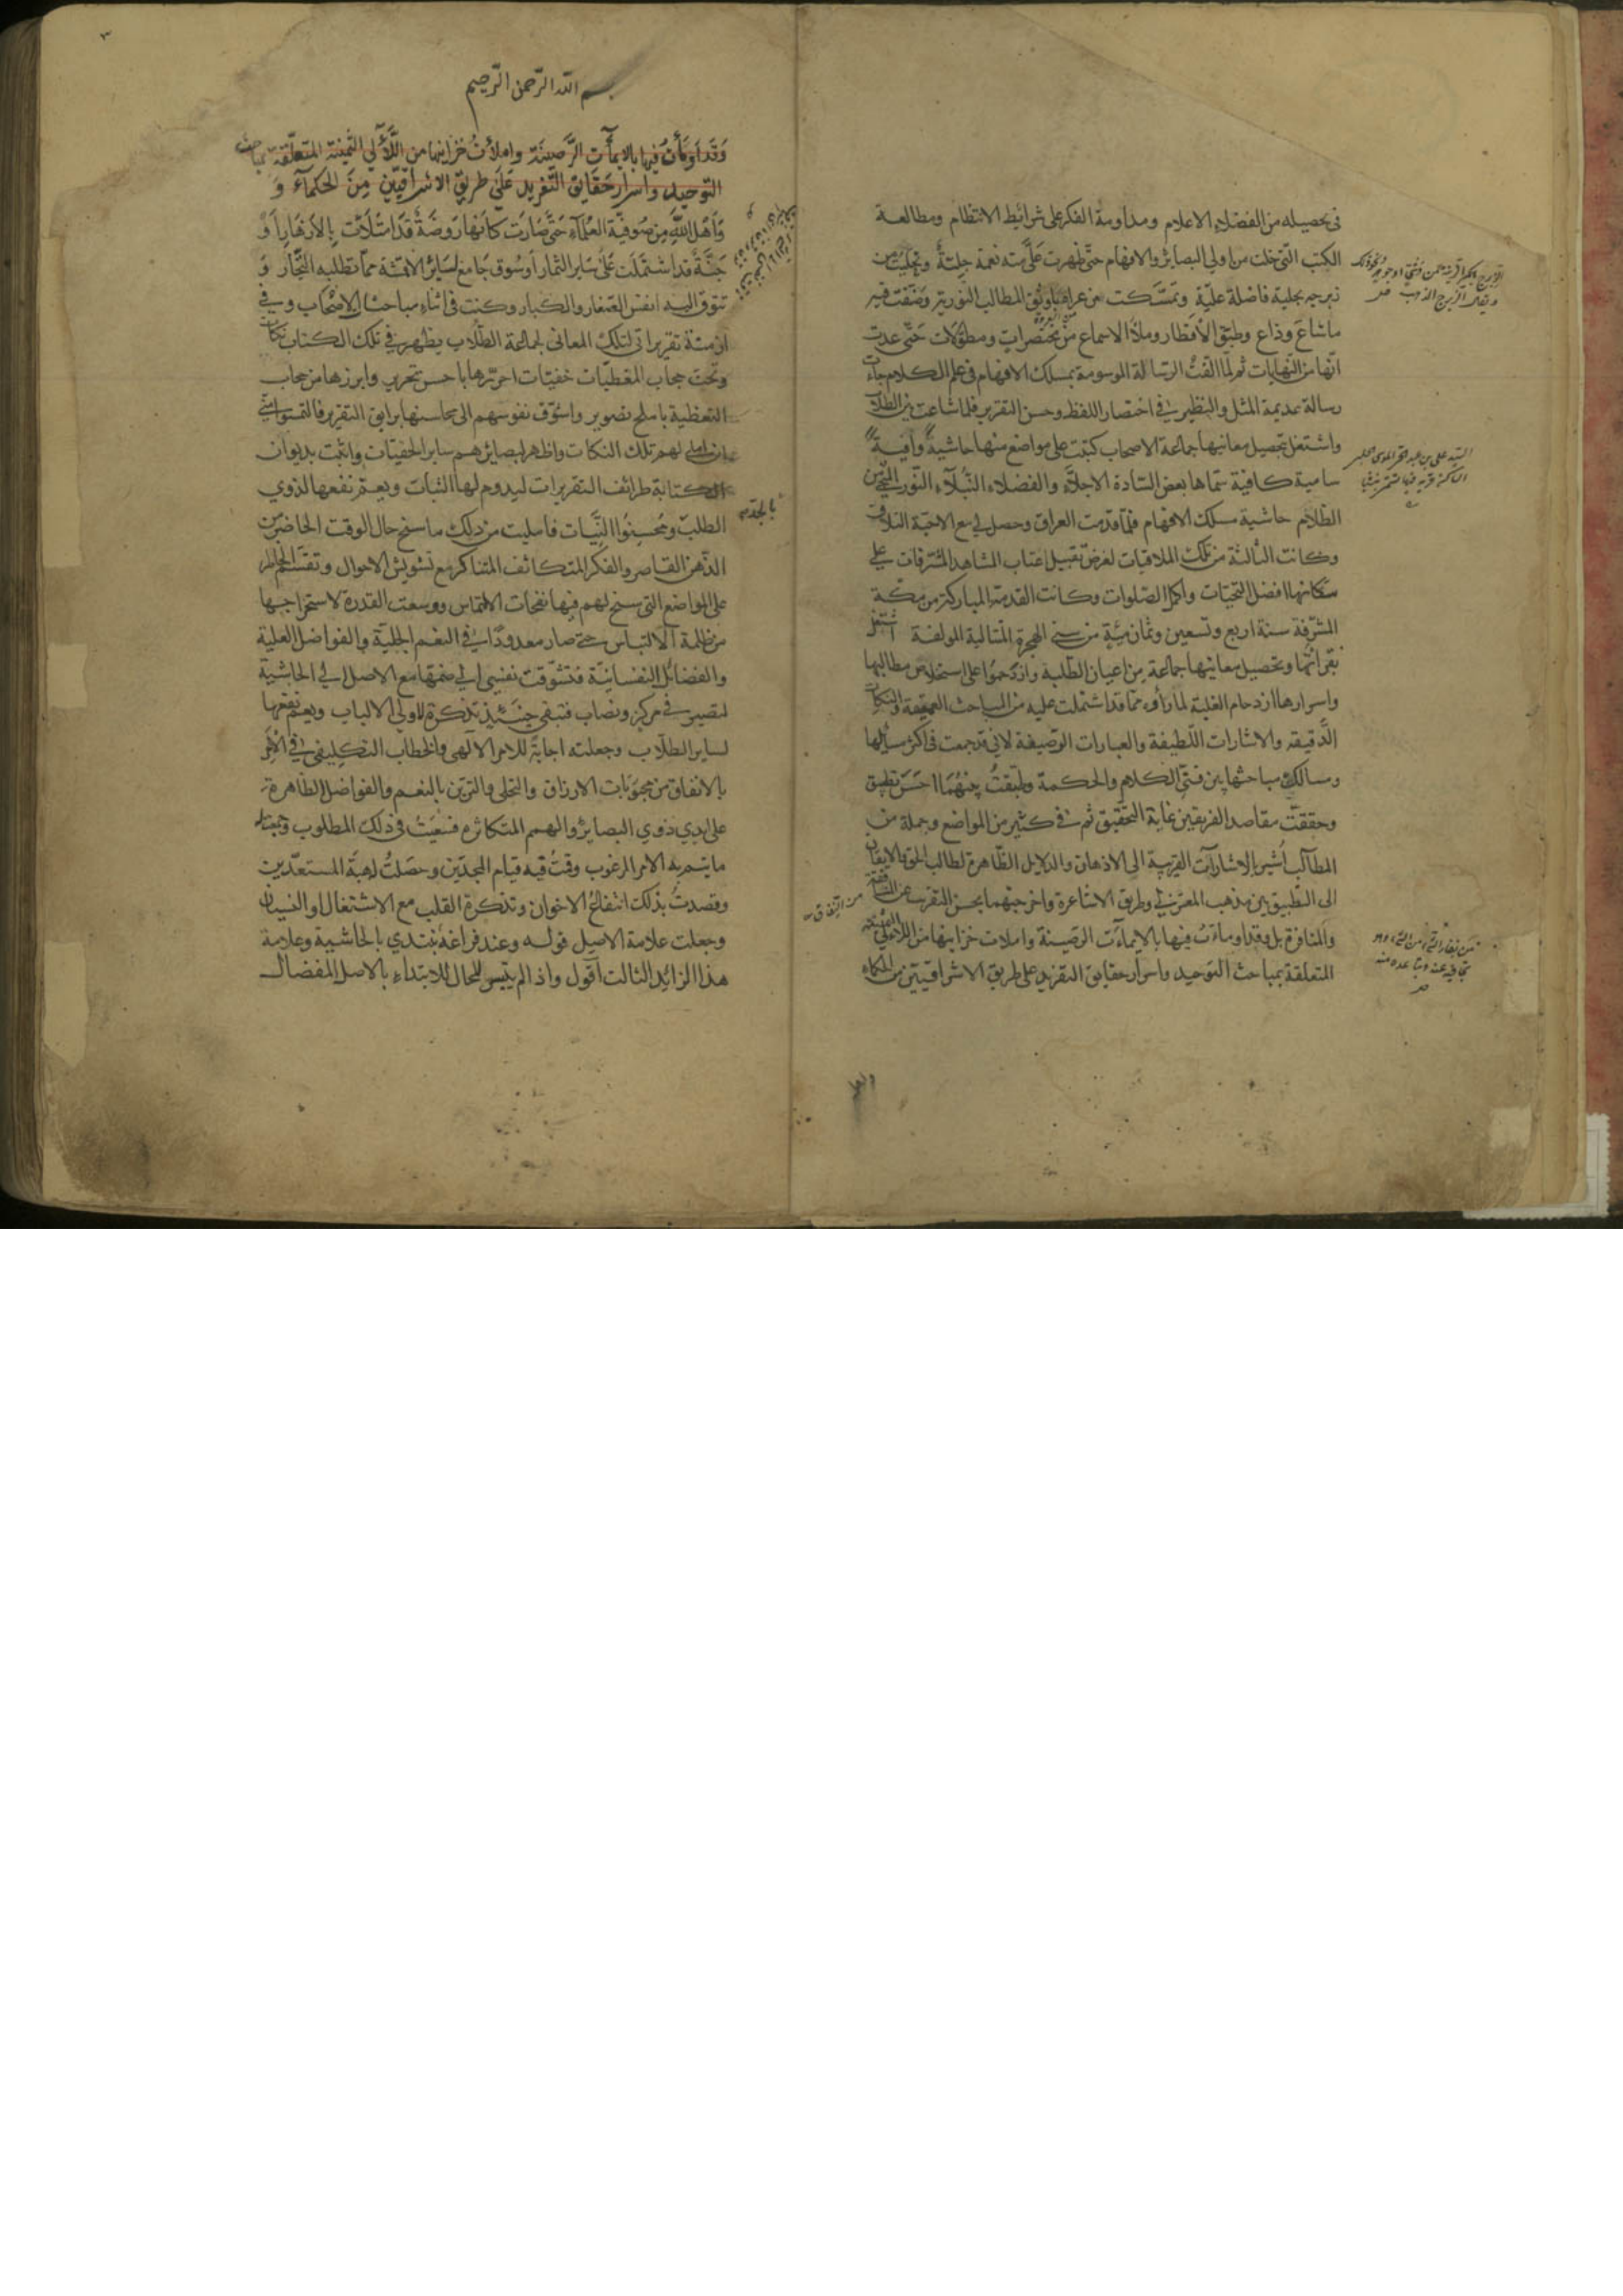 في تحصيله من الفضلاء الاعلام ومداومة الفكر على شرائط الانتظام ومطالعة
الكتب التي خلت من اولي البصائر والافهام حتى ظهرت علي منه نعمة جليلة وتجليت من
زبرجه بحلية فاضلة علية وتمسكت من عراه باوثق المطالب النورية وصنفت فيه
ما شاع وذاع وطبق الاقطار وملأ الاسماع من مختصرات ومطولات حتى عدت
انها من النهايات ثم لما الفت الرسالة الموسومة بمسلك الافهام في علم الكلام جاءت
رسالة عديمة المثل والنظير في اختصار اللفظ وحسن التقرير فلما شاعت بين الطلاب
واشتغل بتحصيل معانيها جماعة الاصحاب كتبت على مواضع منها حاشية وافية
سامية كافية سماها بعض السادة الاجلاء والفضلاء النبلاء النور المنجي من
الظلام حاشية مسلك الافهام فلما قدمت العراق وحصل لي مع الاحبة التلاق
وكانت الثالثة من تلك الملاقيات لغرض تقبيل اعتاب المشاهد المشرفات على
سكانها افضل التحيات واكمل الصلوات وكانت القدمة المباركة من مكة
المشرفة سنة اربع وتسعين وثمان مئة من سني الهجرة المتالية المولفة اشتغل
بقرائتها وتحصيل معانيها جماعة من اعيان الطلبة وازدحموا على استخلاص مطالبها
واسرارها ازدحام الغلبة لما رأوه مما قد اشتملت عليه من المباحث العميقة والنكات
الدقيقة والاشارات اللطيفة والعبارات الرصيفة لاني قد جمعت في اكثر مسائلها
ومسالك مباحثها بين فني الكلام والحكمة وطبقت بينهما احسن تطبيق
وحققت مقاصد الفريقين غاية التحقيق ثم في كثير من المواضع وجملة من
المطالب اشير بالاشارات القريبة الى الاذهان والدلايل الظاهرة لطالب الحق والايقان
الى التطبيق بين مذهب المعتزلي وطريق الاشاعرة واخرجتهما بحسن التقريب عن الشاقة
والمنافرة بل وقد اومأت فيها بالايماءات الرصينة واملات خزاينها من اللآلي الثمينة
المتعلقة بمباحث التوحيد واسرار حقايق التفريد على طريق الاشراقيين من الحكماء
واهل
بسم الله الرحمن الرحيم
وقد اومأت فيها بالايماآت الرصينة واملأت خزاينها من اللآلي الثمينة المتعلقة بمباحث
التوحيد واسرار حقايق التفريد على طريق الاشراقيين من الحكماء و
اهل الله من صوفية العلماء حتى صارت كانها روضة قد امتلأت بالازهار او
جنة قد اشتملت على ساير الثمار او سوق جامع لسائر الامتعة مما تطلبه التجار و
تتوق اليه انفس الصغار والكبار وكنت في اثناء مباحث الاصحاب وفي
ازمنة تقريراتي لتلك المعاني لجماعة الطلاب يظهر في تلك الكتاب نكات
وتحت حجاب المغطيات خفيات احررها باحسن تحرير وابرزها من حجاب
التغطية باملح تصوير واشوق نفوسهم الى محاسنها برايق التقرير فالتمسوا مني
ان املي لهم تلك النكات واظهر لبصائرهم ساير الخفيات واثبت بديوان
الكتابة طرائف التقريرات ليدوم لها الثبات ويعم نفعها لذوي
الطلب ومحسنوا النيات فامليت من ذلك ما سنح حال الوقت الحاضر من
الذهن القاصر والفكر المتكائف المتناكر مع تشويش الاحوال وتقسم الخاطر
على المواضع التي سنح لهم فيها نفحات الالتماس ووسعت القدرة لاستخراجها
من ظلمة الالتباس حتى صار معدودا في النعم الجليلة والفواضل العلية
والفضائل النفسانية فتشوقت نفسي الى ضمها مع الاصل الى الحاشية
لتصير في مركز ونصاب فتبقى حينئذ تذكرة لاولي الالباب ويعم نفعها
لساير الطلاب وجعلته اجابة للامر الالهي والخطاب التكليفي في الامر
بالانفاق من محبوبات الارزاق والتحلي والتزين بالنعم والفواضل الظاهرة
على ايدي ذوي البصائر والهمم المتكاثرة فسعيت في ذلك المطلوب
ما يتم به الامر المرغوب وقمت فيه قيام المجدين وحصلت اهبة المستعدين
وقصدت بذلك انتفاع الاخوان وتذكرة القلب مع الاشتغال او النسيان
وجعلت علامة الاصل قوله وعند فراغه نبتدي بالحاشية وعلامة
هذا الزائد الثالث اقول واذا لم يتيسر للحال للابتداء بالاصل المفضال